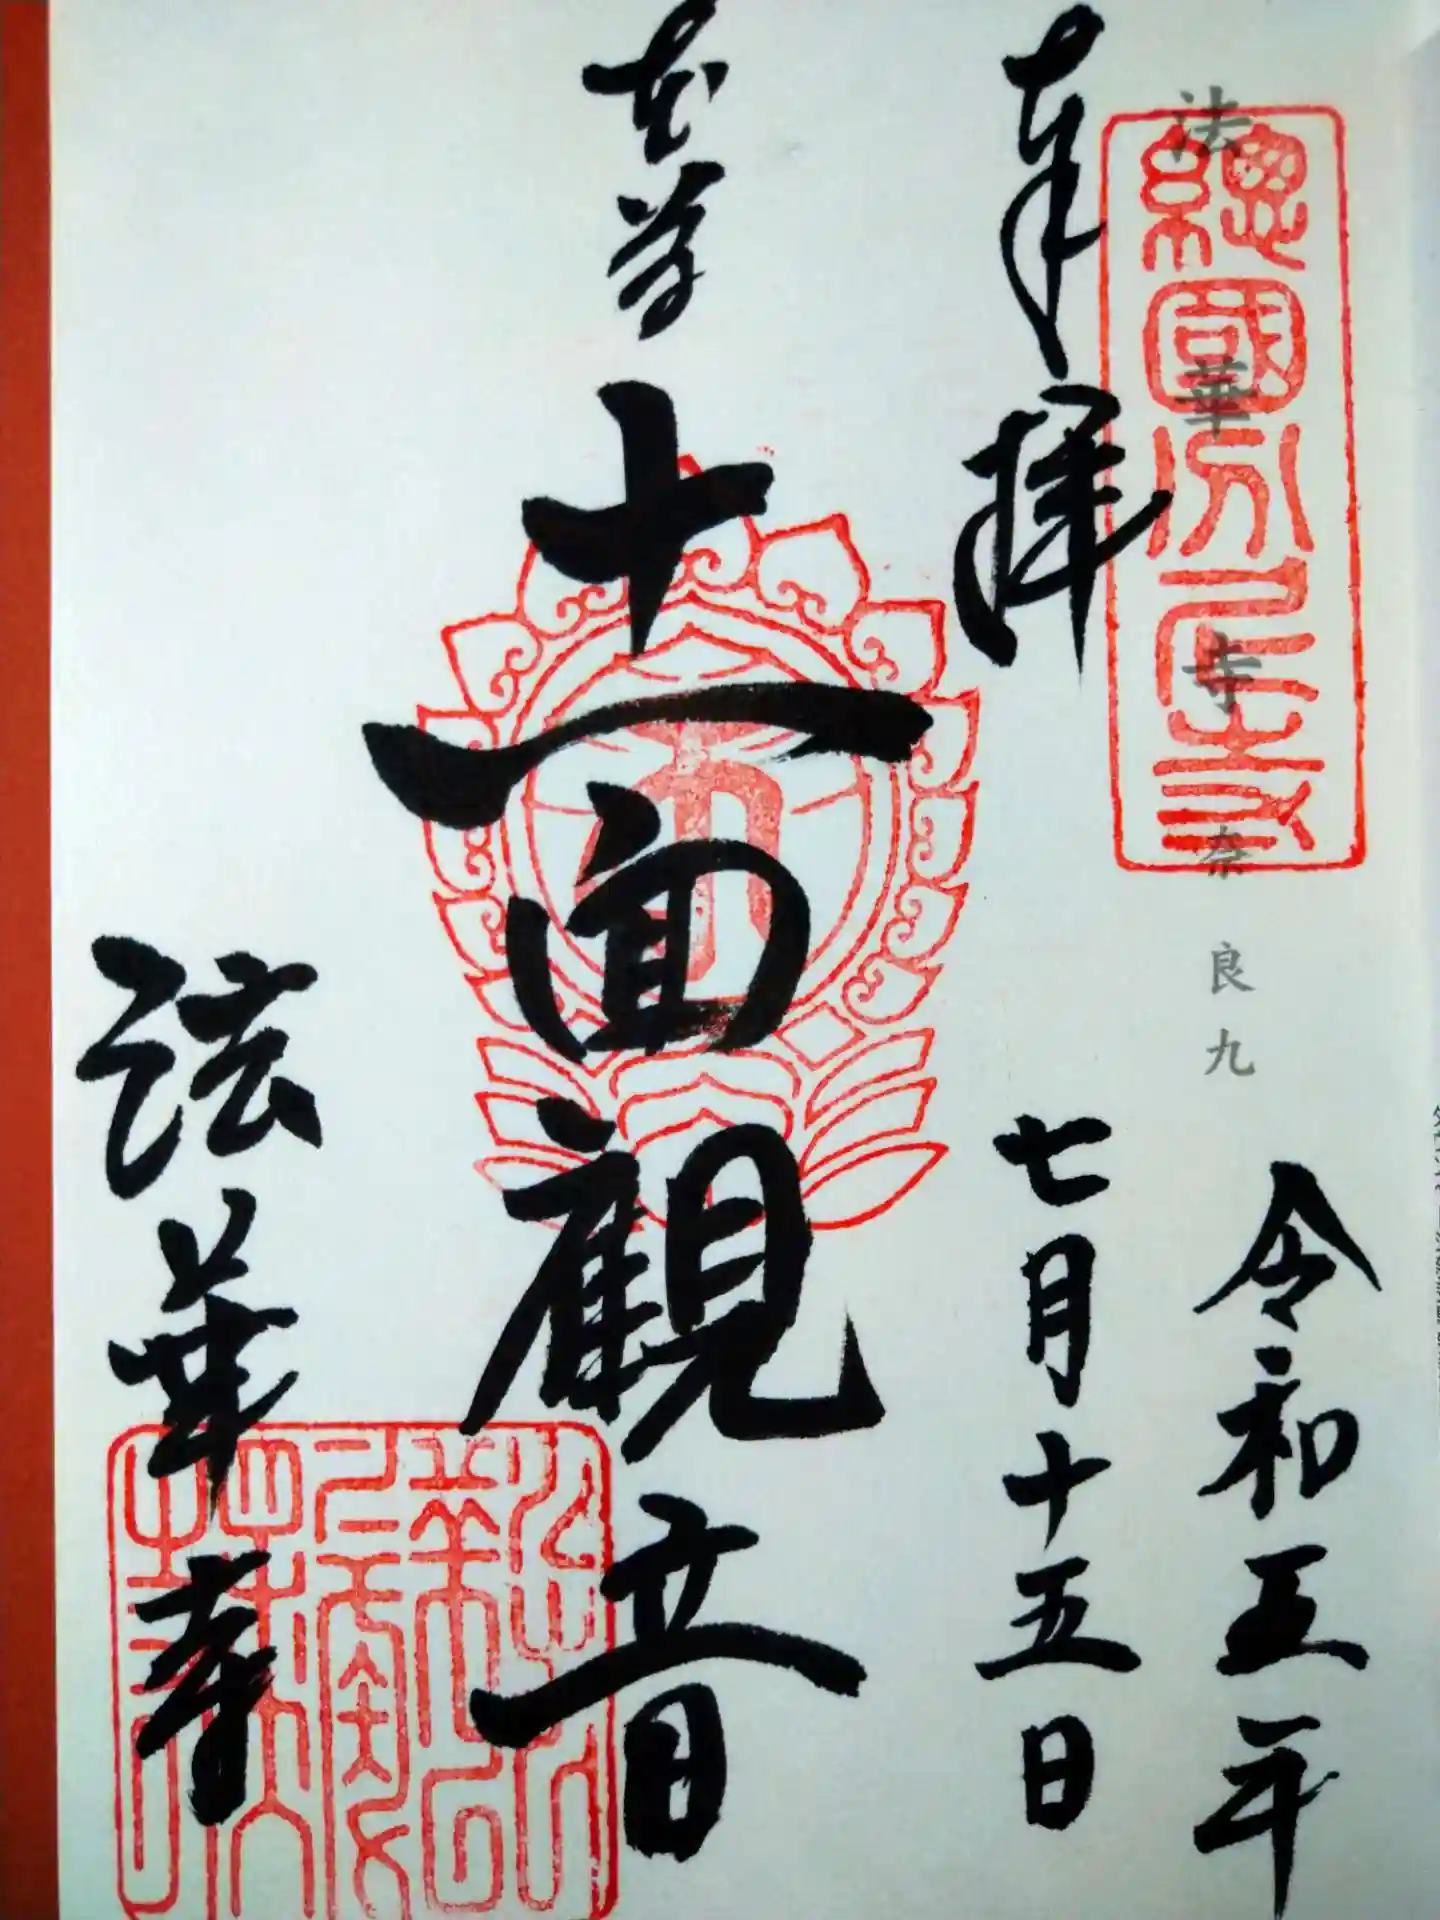 總國分尼寺
法華寺 奈良九
令和五年
奉拝
七月十五日
本尊
十一面觀音
法華寺